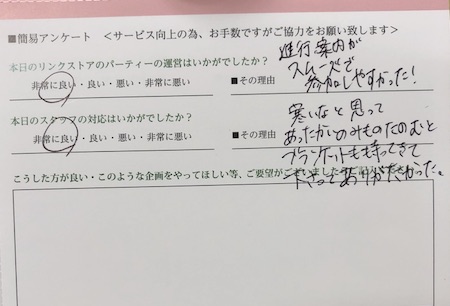 ■簡易アンケート <サービス向上の為、お手数ですがご協力をお願い致します>
本日のリンクストアのパーティーの運営はいかがでしたか?
非常に良い・良い・悪い・非常に悪い
■その理由
進行案内が
スムーズで
参加しやすかった!
本日のスタッフの対応はいかがでしたか?
非常に良い・良い・悪い・非常に悪い
■その理由
寒いなと思って
あったかいのみものたのむと
ブランケットも持ってきて
下さってありがたかった。
こうした方が良い・このような企画をやってほしい等、ご要望がございましたら